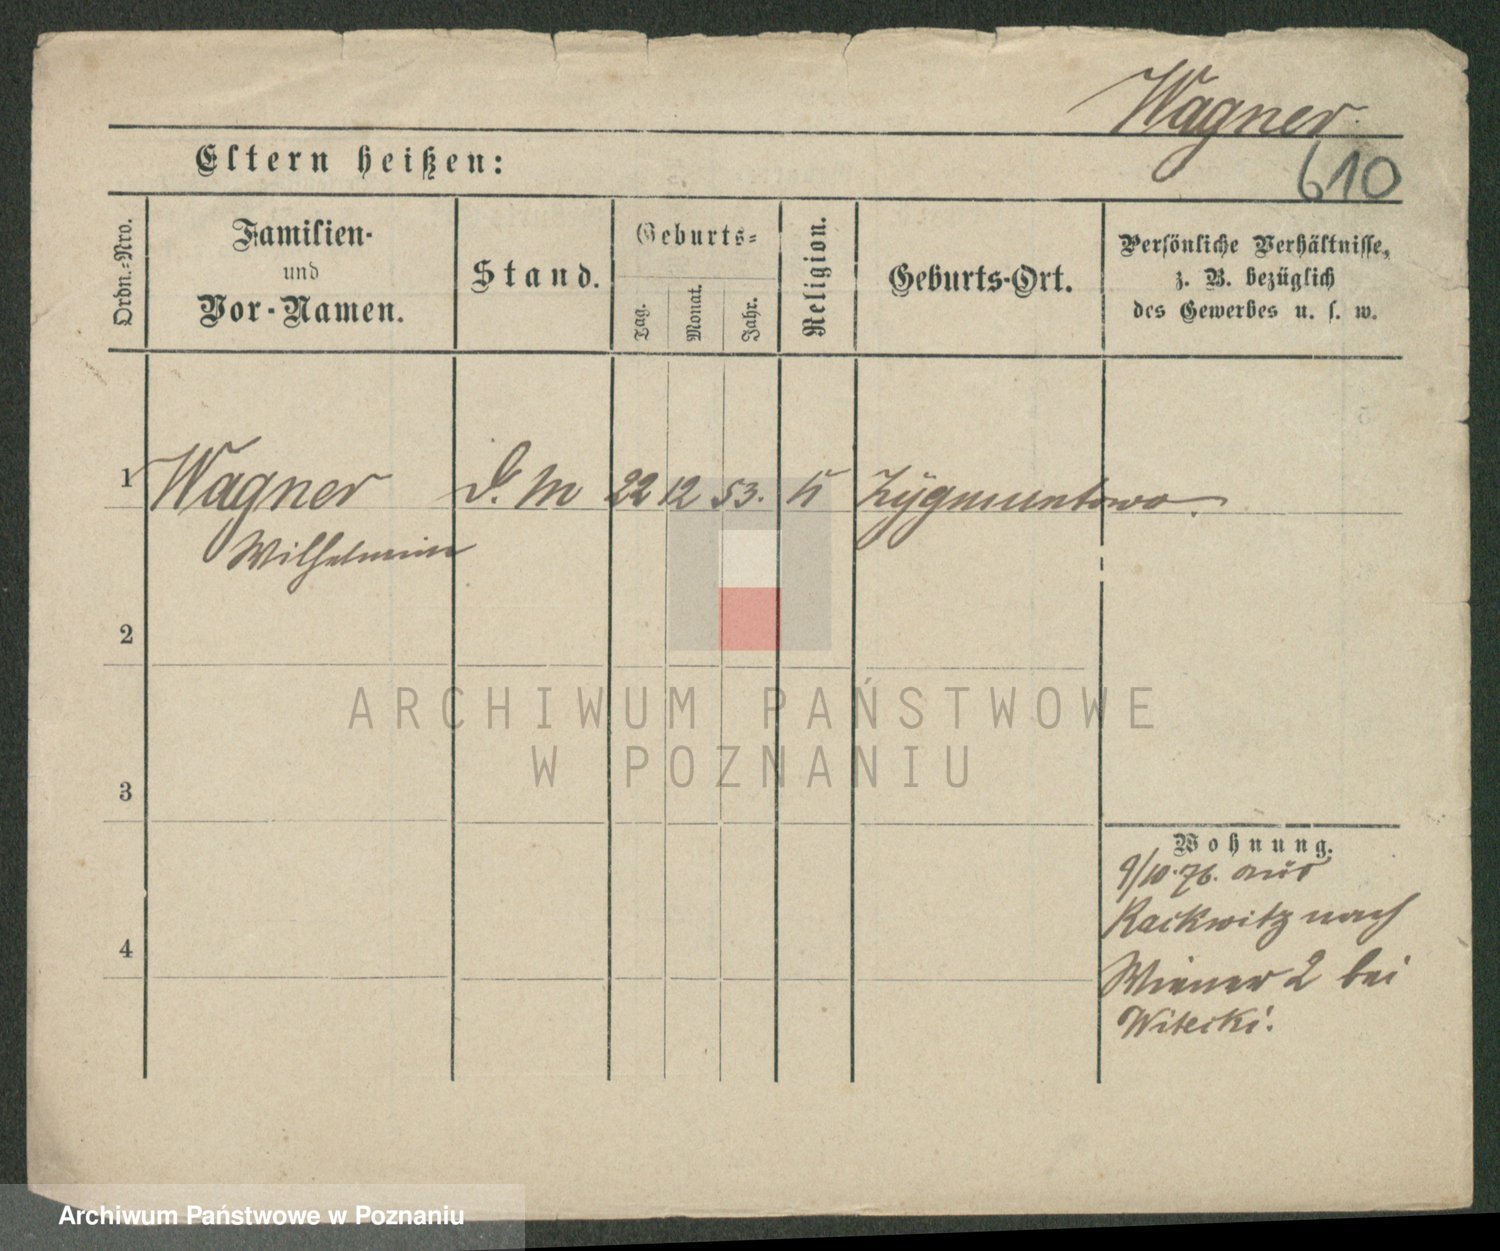 Wagner
610
Eltern heißen:
Ordn.-Nro.
Familien-
und
Vor-Namen.
Stand.
Geburts-
Tag.
Monat.
Jahr.
Religion.
Geburts-Ort.
Persönliche Verhältnisse,
z. B. bezüglich
des Gewerbes u. s. w.
1 Wagner D. M 22 12 53. K Zygmuntowo.
Wilhelmine
2
3
4
Wohnung.
9/10. 76. aus
Rackwitz nach
Wiener 2 bei
Witecki.
ARCHIWUM PAŃSTWOWE
W POZNANIU
Archiwum Państwowe w Poznaniu